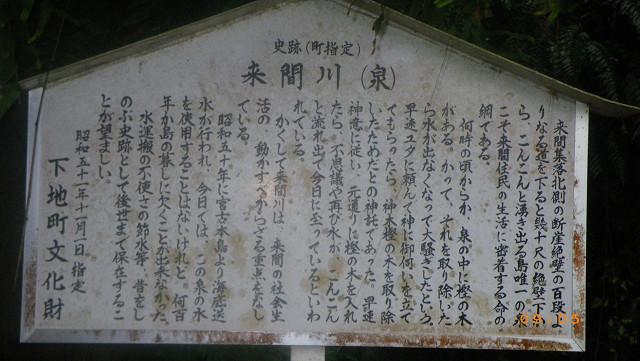 史跡(町指定)
来間川(泉)
来間集落北側の断崖絶壁の百段よ
りなる道を下ると数十尺の絶壁下か
ら、こんこんと湧き出る島唯一の水
こそ来間住民の生活に密着する命の
綱である。
何時の頃からか、泉の中に樫の木
がある。かつて、それを取り除いた
ら水が出なくなって大騒ぎしたという。
早速ユタに頼んで神に御伺いを立て
てもらったら、神が樫の木を取り除
したためだとの神託であった。早速
神意に従い、元通りに樫の木を入れ
たら、不思議と再び水が、こんこん
と流れ出て今日に至っているといわ
れている。
かくして来間川は、来間の社会生
活の、動かすべからざる重点をなし
ている。
昭和五十年に宮古本島より海底送
水が行われ、今日では、この泉の水
を使用することはないけれど、何百
年か島の暮しに欠くことが出来なかった
水運搬の不便さの節水等、昔をし
のぶ史跡として後世まで保存するこ
とが望ましい。
昭和五十一年十月一日指定
下地町文化財